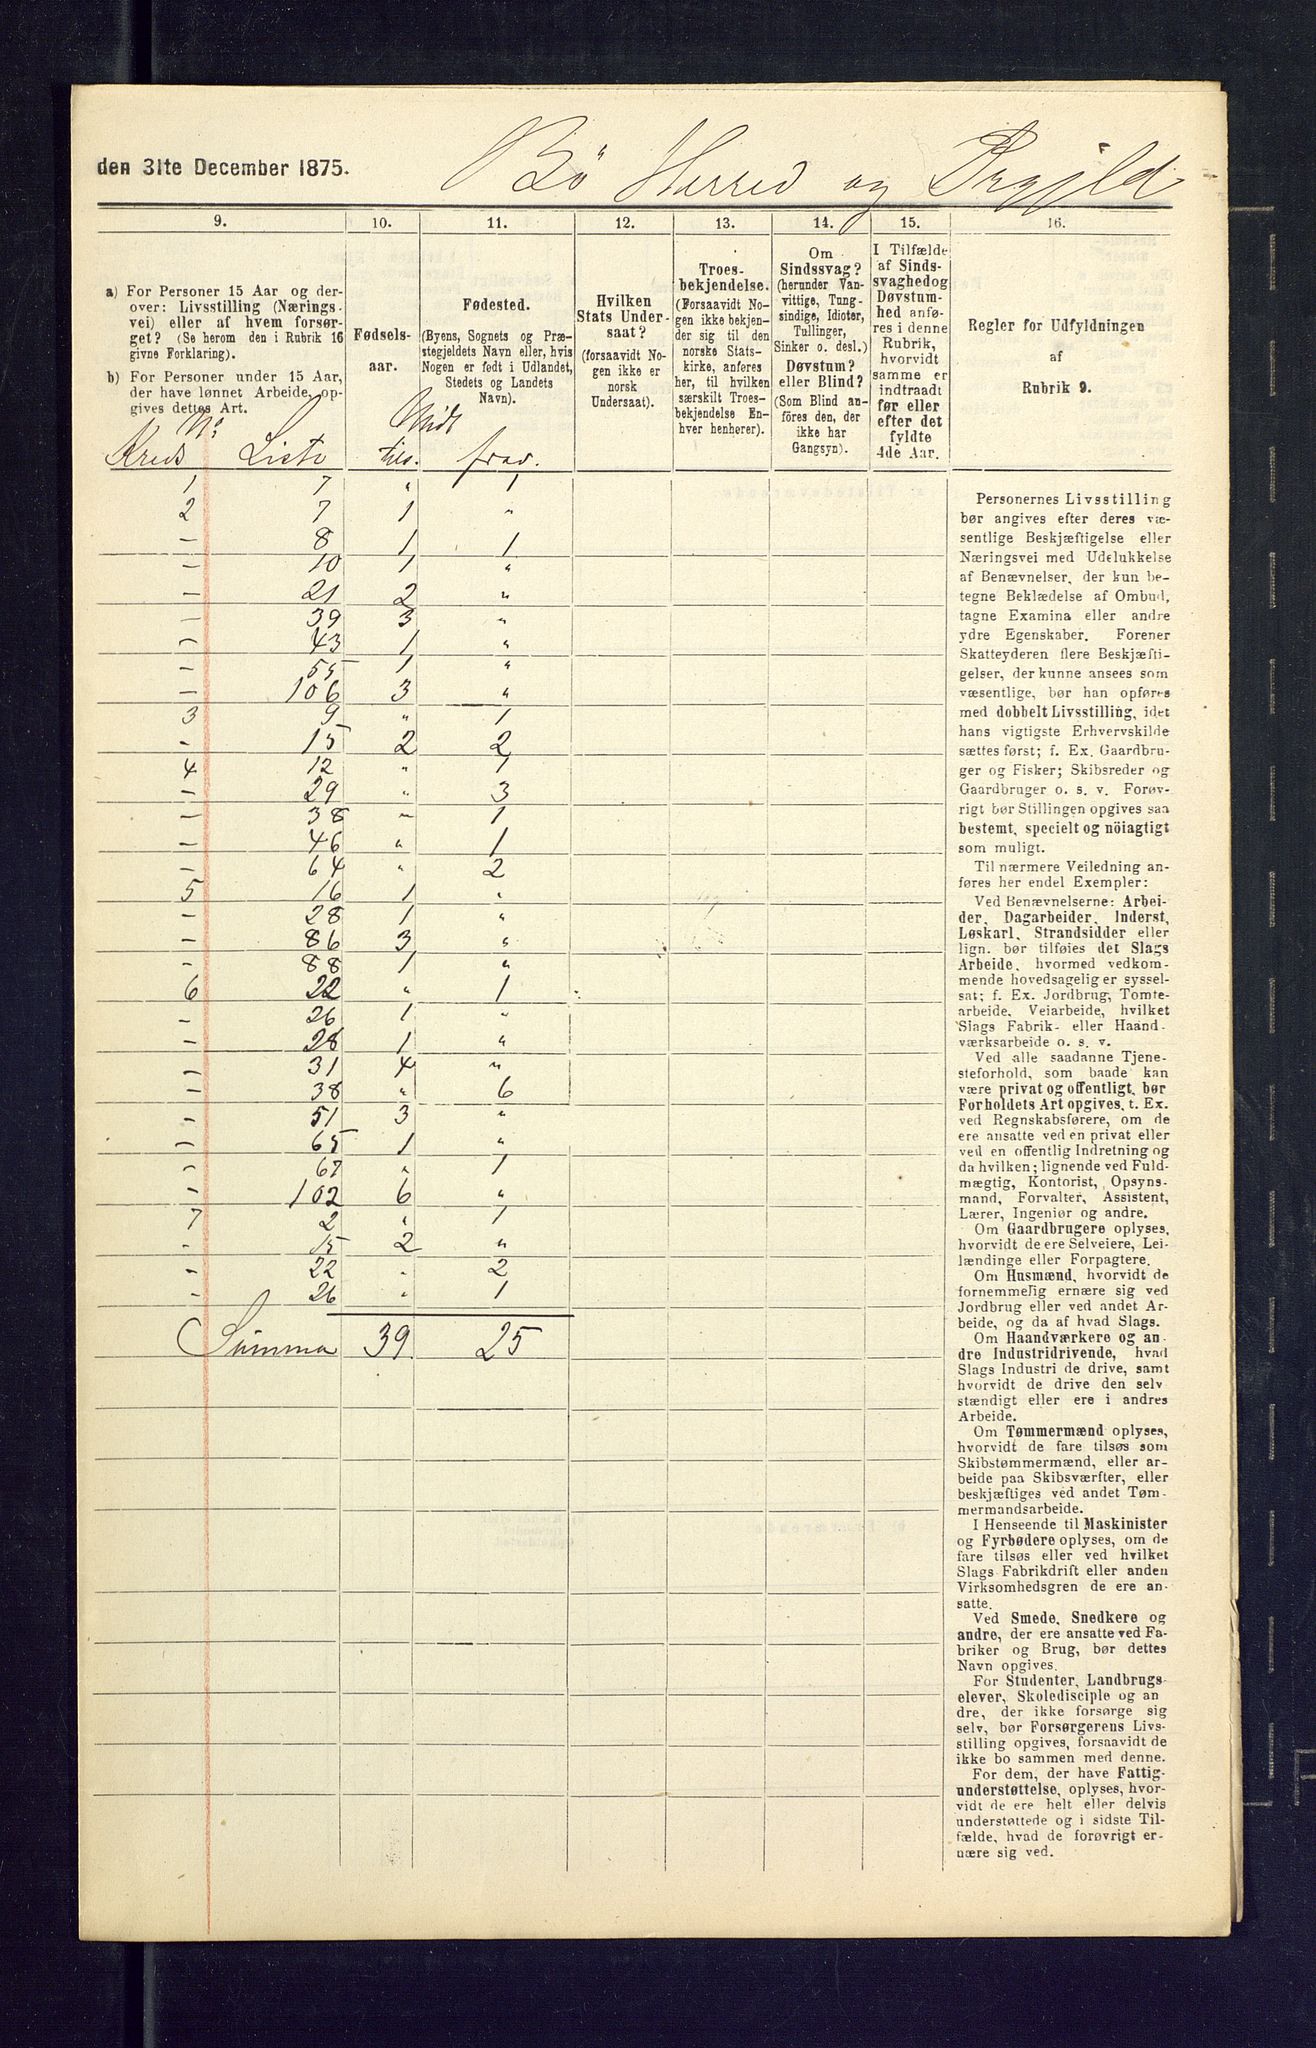 den 31te December 1875.
Bö Herred og Prgjeld
9. 10. 11. 12. 13. 14. 15. 16.
a) For Personer 15 Aar og der-
over: Livsstilling (Nærings-
vei) eller af hvem forsør-
get? (Se herom den i Rubrik 16
givne Forklaring).
b) For Personer under 15 Aar,
der have lønnet Arbeide, op-
gives dettes Art.
Fødsels-
aar.
Fødested.
(Byens, Sognets og Præ-
stegjeldets Navn eller, hvis
Nogen er født i Udlandet,
Stedets og Landets
Navn).
Hvilken
Stats Under-
saat?
(forsaavidt No-
gen ikke er
norsk
Undersaat).
Troes-
bekjendelse.
(Forsaavidt No-
gen ikke bekjen-
der sig til den
norske Stats-
kirke, anføres
her, til hvilken
særskilt Troes-
bekjendelse En-
hver henhører).
Om
Sindssvag?
(herunder Van-
vittige, Tung-
sindige, Idioter,
Tullinger,
Sinker o. desl.)
Døvstum?
eller Blind?
(Som Blind an-
føres den, der
ikke har
Gangsyn).
I Tilfælde
af Sinds-
svaghed og
Døvstum-
hed anfø-
res i denne
Rubrik,
hvorvidt
samme er
indtraadt
før eller
efter det
fyldte
4de Aar.
Regler for Udfyldningen
af
Rubrik 9.
No Midt
Kreds Liste tils. frav.
1 7 " 1
2 7 1 "
- 8 1 1
- 10 1 "
- 21 2 "
- 39 3 "
- 43 1 "
- 55 1 "
- 106 3 "
3 9 " 1
- 15 2 2
4 12 " 1
- 29 " 3
- 38 " 1
- 46 " 1
- 64 " 2
5 16 1 "
- 28 1 "
- 86 3 "
- 88 1 "
6 22 " 1
- 26 1 "
- 28 1 "
- 31 4 "
- 38 " 6
- 51 3 "
- 65 1 "
- 67 " 1
- 102 6 "
7 2 " 1
- 15 2 "
- 22 " 2
- 26 " 1
Summa 39 25
Personernes Livsstilling
bør angives efter deres væ-
sentlige Beskjæftigelse eller
Næringsvei med Udelukkelse
af Benævnelser, der kun be-
tegne Beklædelse af Ombud,
tagne Examina eller andre
ydre Egenskaber. Forener
Skatteyderen flere Beskjæfti-
gelser, der kunne ansees som
væsentlige, bør han opføres
med dobbelt Livsstilling, idet
hans vigtigste Erhvervskilde
sættes først; f. Ex. Gaardbru-
ger og Fisker; Skibsreder og
Gaardbruger o. s. v. Forøv-
rigt bør Stillingen opgives saa
bestemt, specielt og nöiagtigt
som muligt.
Til nærmere Veiledning an-
føres her endel Exempler:
Ved Benævnelserne: Arbei-
der, Dagarbeider, Inderst,
Løskarl, Strandsidder eller
lign. bør tilføies det Slags
Arbeide, hvormed vedkom-
mende hovedsagelig er syssel-
sat; f. Ex. Jordbrug, Tomte-
arbeide, Veiarbeide, hvilket
Slags Fabrik- eller Haand-
værksarbeide o. s. v.
Ved alle saadanne Tjene-
steforhold, som baade kan
være privat og offentligt, bør
Forholdets Art opgives, t. Ex.
ved Regnskabsførere, om de
ere ansatte ved en privat eller
ved en offentlig Indretning og
da hvilken; lignende ved Fuld-
mægtig, Kontorist, Opsyns-
mand, Forvalter, Assistent,
Lærer, Ingeniør og andre.
Om Gaardbrugere oplyses,
hvorvidt de ere Selveiere, Lei-
lændinge eller Forpagtere.
Om Husmænd, hvorvidt de
fornemmelig ernære sig ved
Jordbrug eller ved andet Ar-
beide, og da af hvad Slags.
Om Haandværkere og an-
dre Industridrivende, hvad
Slags Industri de drive, samt
hvorvidt de drive den selv
stændigt eller ere i andres
Arbeide.
Om Tømmermænd oplyses,
hvorvidt de fare tilsøs som
Skibstømmermænd, eller ar-
beide paa Skibsværfter, eller
beskjæftiges ved andet Tøm-
mermandsarbeide.
I Henseende til Maskinister
og Fyrbødere oplyses, om de
fare tilsøs eller ved hvilket
Slags Fabrikdrift eller anden
Virksomhedsgren de ere an-
satte.
Ved Smede, Snedkere og
andre, der ere ansatte ved Fa-
briker og Brug, bør dettes
Navn opgives.
For Studenter, Landbrugs-
elever, Skoledisciple og an
dre, der ikke forsørge sig
selv, bør Forsørgerens Livs-
stilling opgives, forsaavidt de
ikke bo sammen med denne.
For dem, der have Fattig-
understøttelse, oplyses, hvor-
vidt de ere helt eller delvis
understøttede og i sidste Til-
fælde, hvad de forøvrigt er-
nære sig ved.